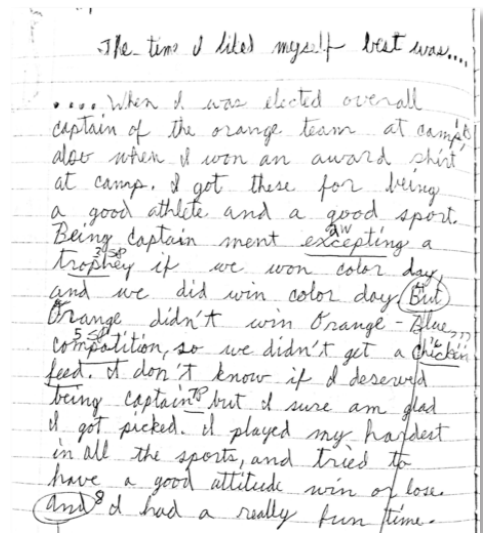 The time I liked myself best was....
.... When I was elected overall
captain of the orange team at camp,
also when I won an award shirt
at camp. I got these for being
a good athlete and a good sport.
Being captain ment excepting a
trophey if we won color day,
and we did win color day. But
Orange didn't win Orange-Blue
compatition, so we didn't get a chicken
feed. I don't know if I deserved
being captain but I sure am glad
I got picked. I played my hardest
in all the sports, and tried to
have a good attitude win or lose.
And I had a really fun time.